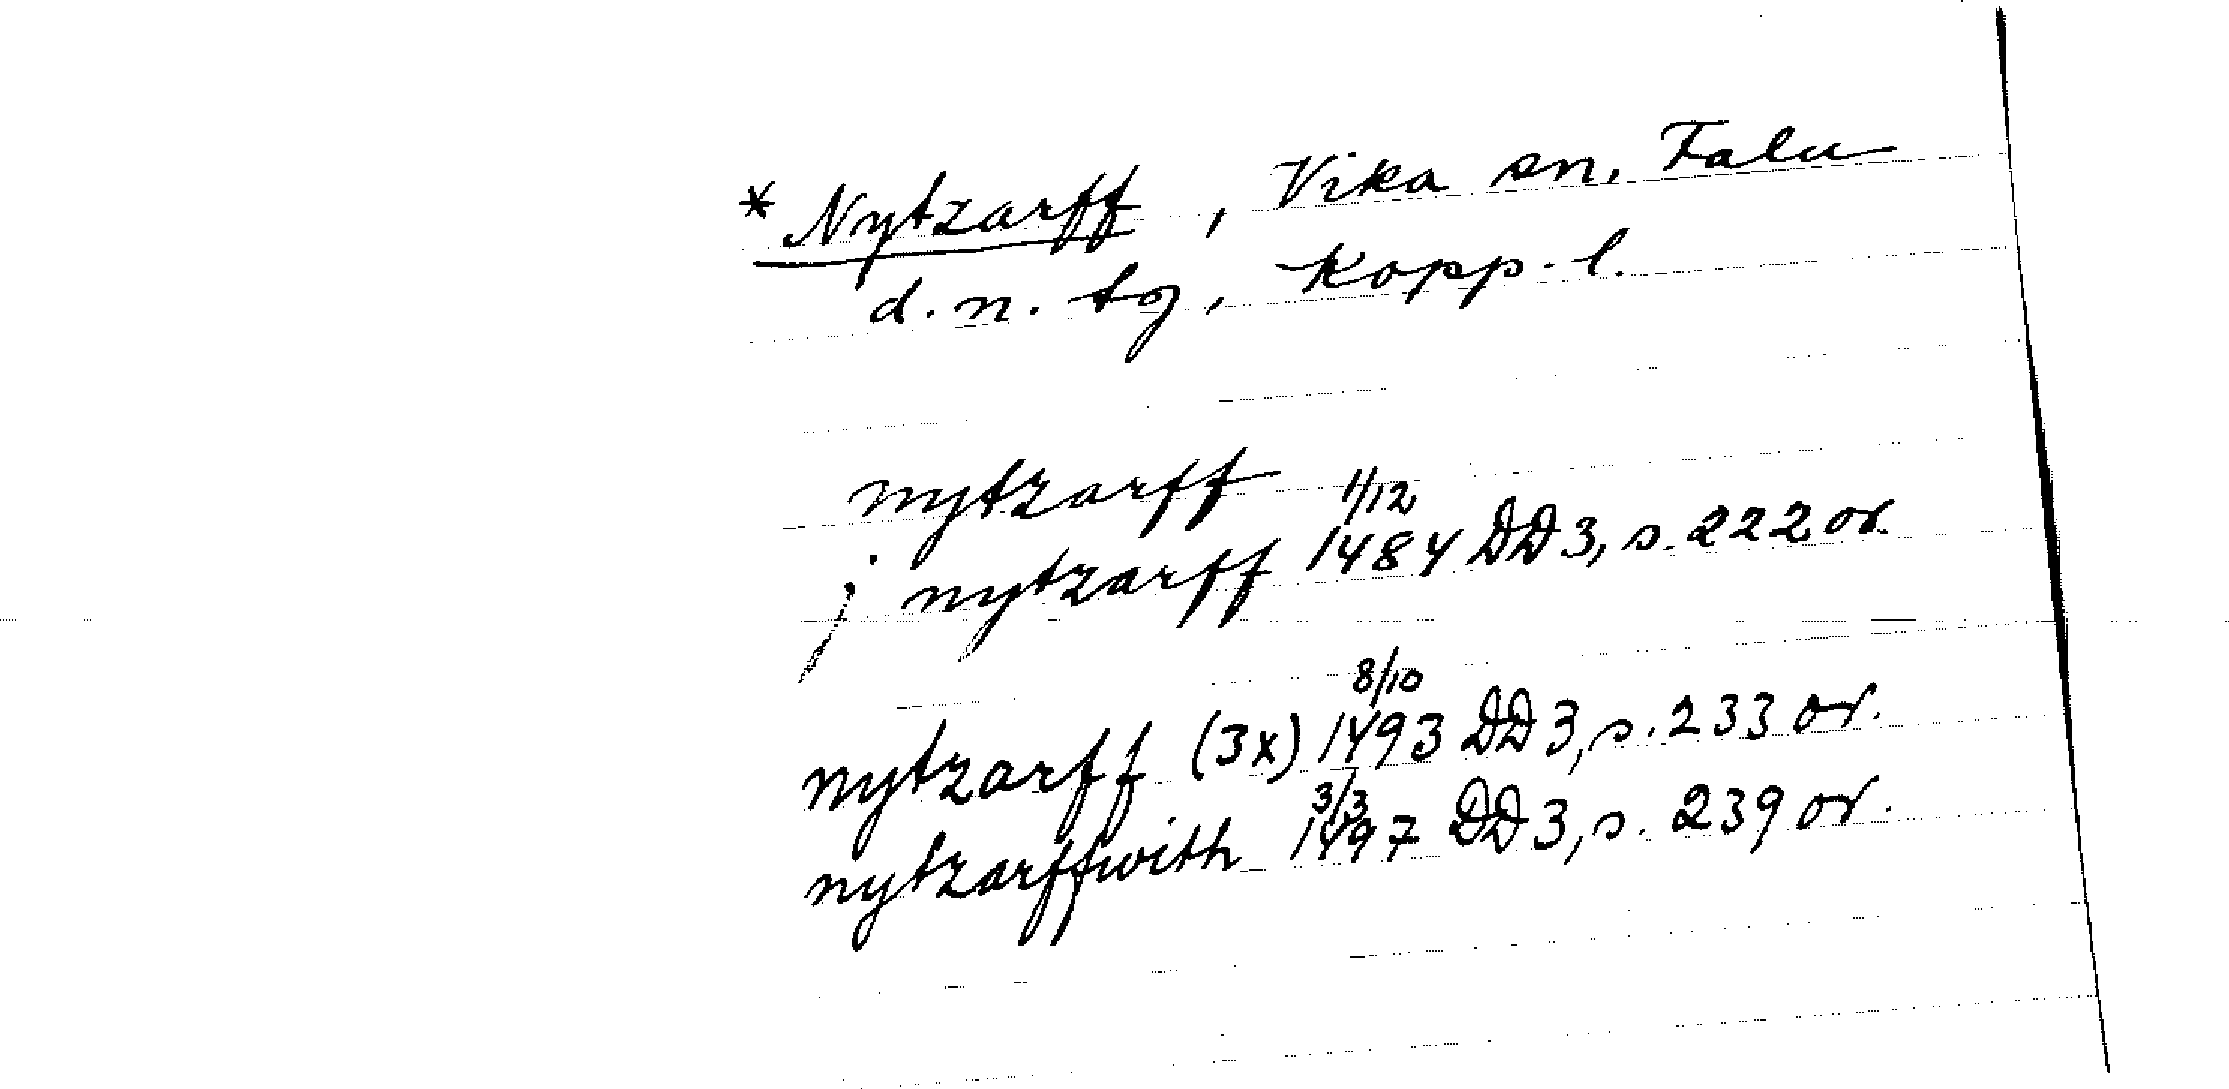 * Nytzarff, Vika sn, Falu
d. n. tg, Kopp. l.
nytzarff
j nytzarff 1/12 1484 DD3, s. 222 or.
nytzarff (3x) 8/10 1493 DD3, s. 233 or.
nytzarffwith 3/3 1497 DD3, s. 239 or.